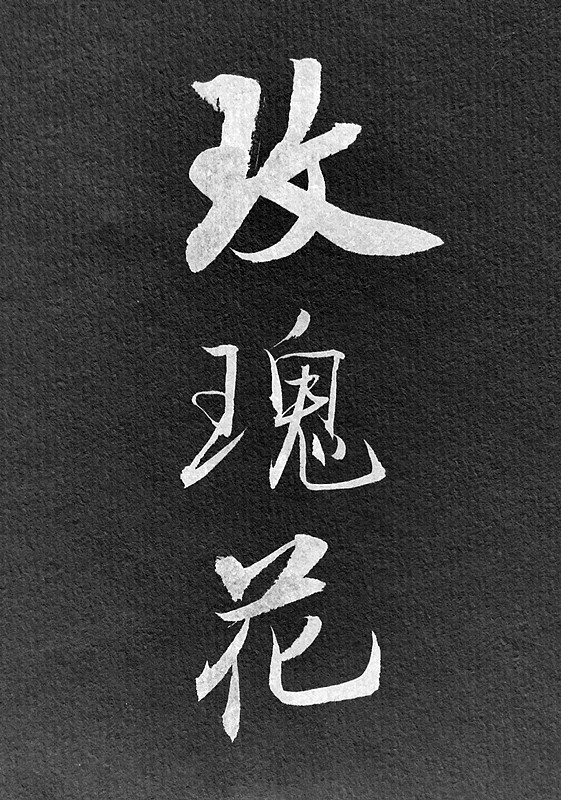 玫瑰花